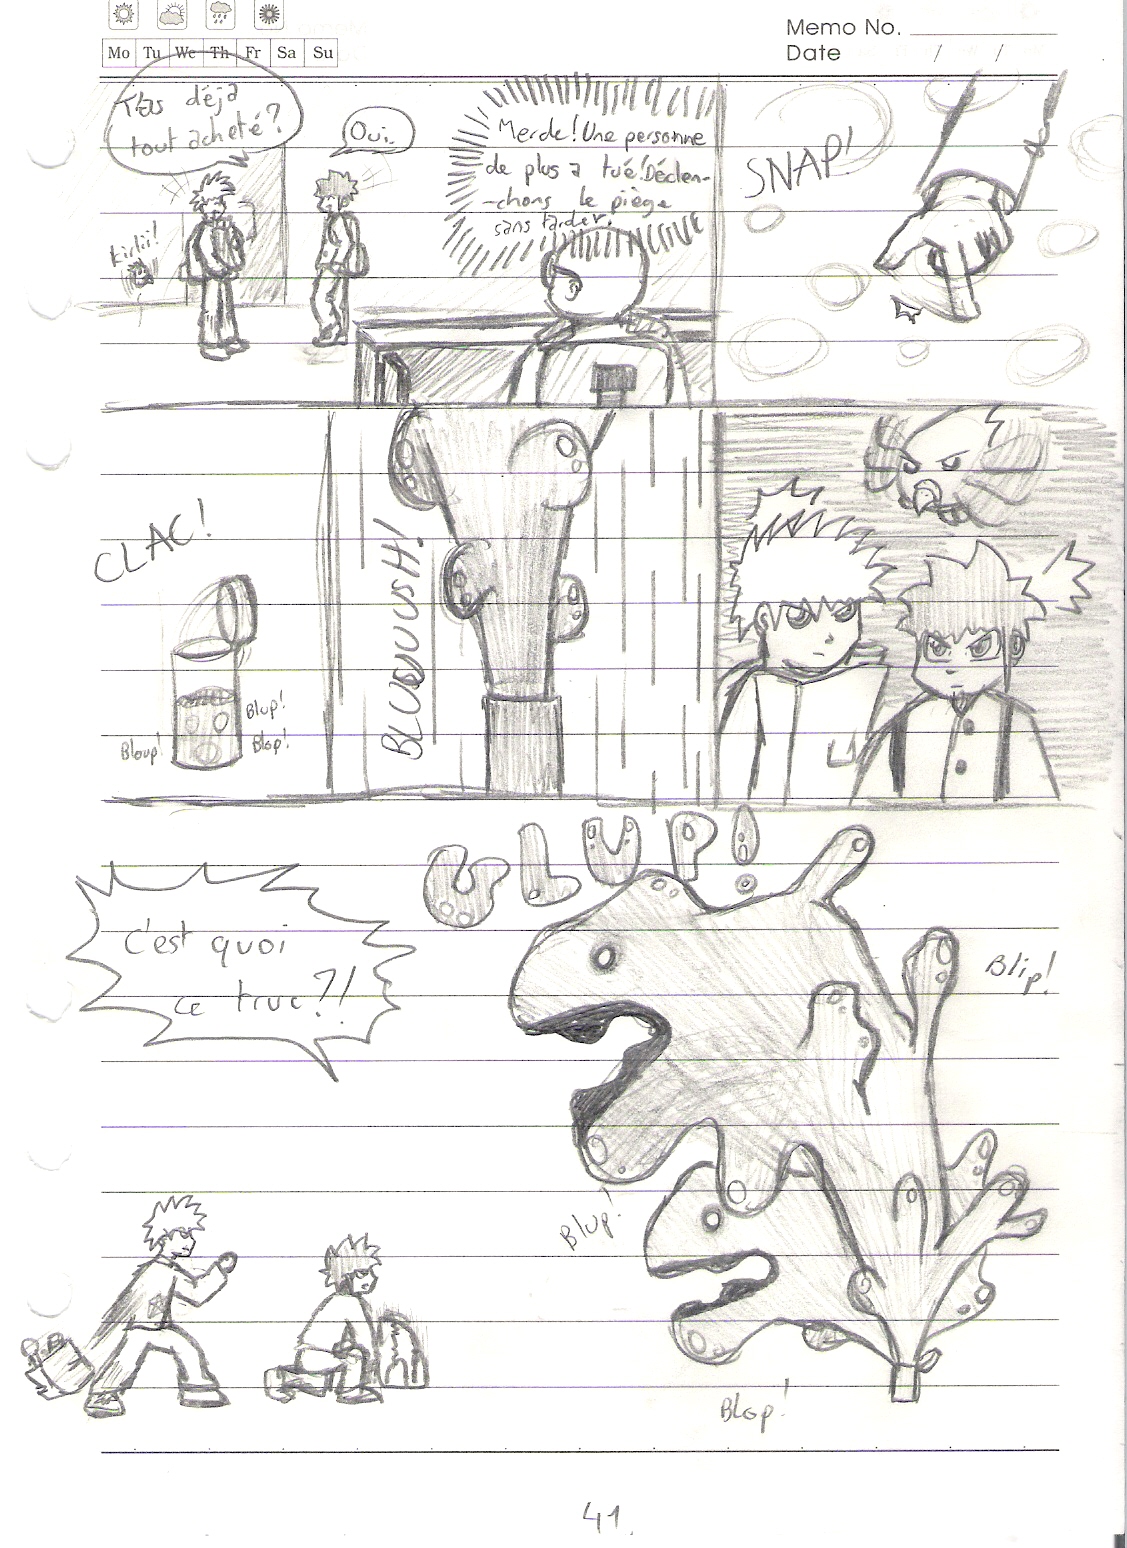 Memo No.
Date / /
Mo Tu We Th Fr Sa Su
T'as déjà
tout acheté?
Oui.
Merde! Une personne
de plus a tué! Déclen-
-chons le piège
sans tarder.
SNAP!
CLAC!
Blup!
Bloup!
Blop!
BLUOUUSH!
GLUP!
C'est quoi
ce truc?!
Blip!
Blup!
Blop!
41.